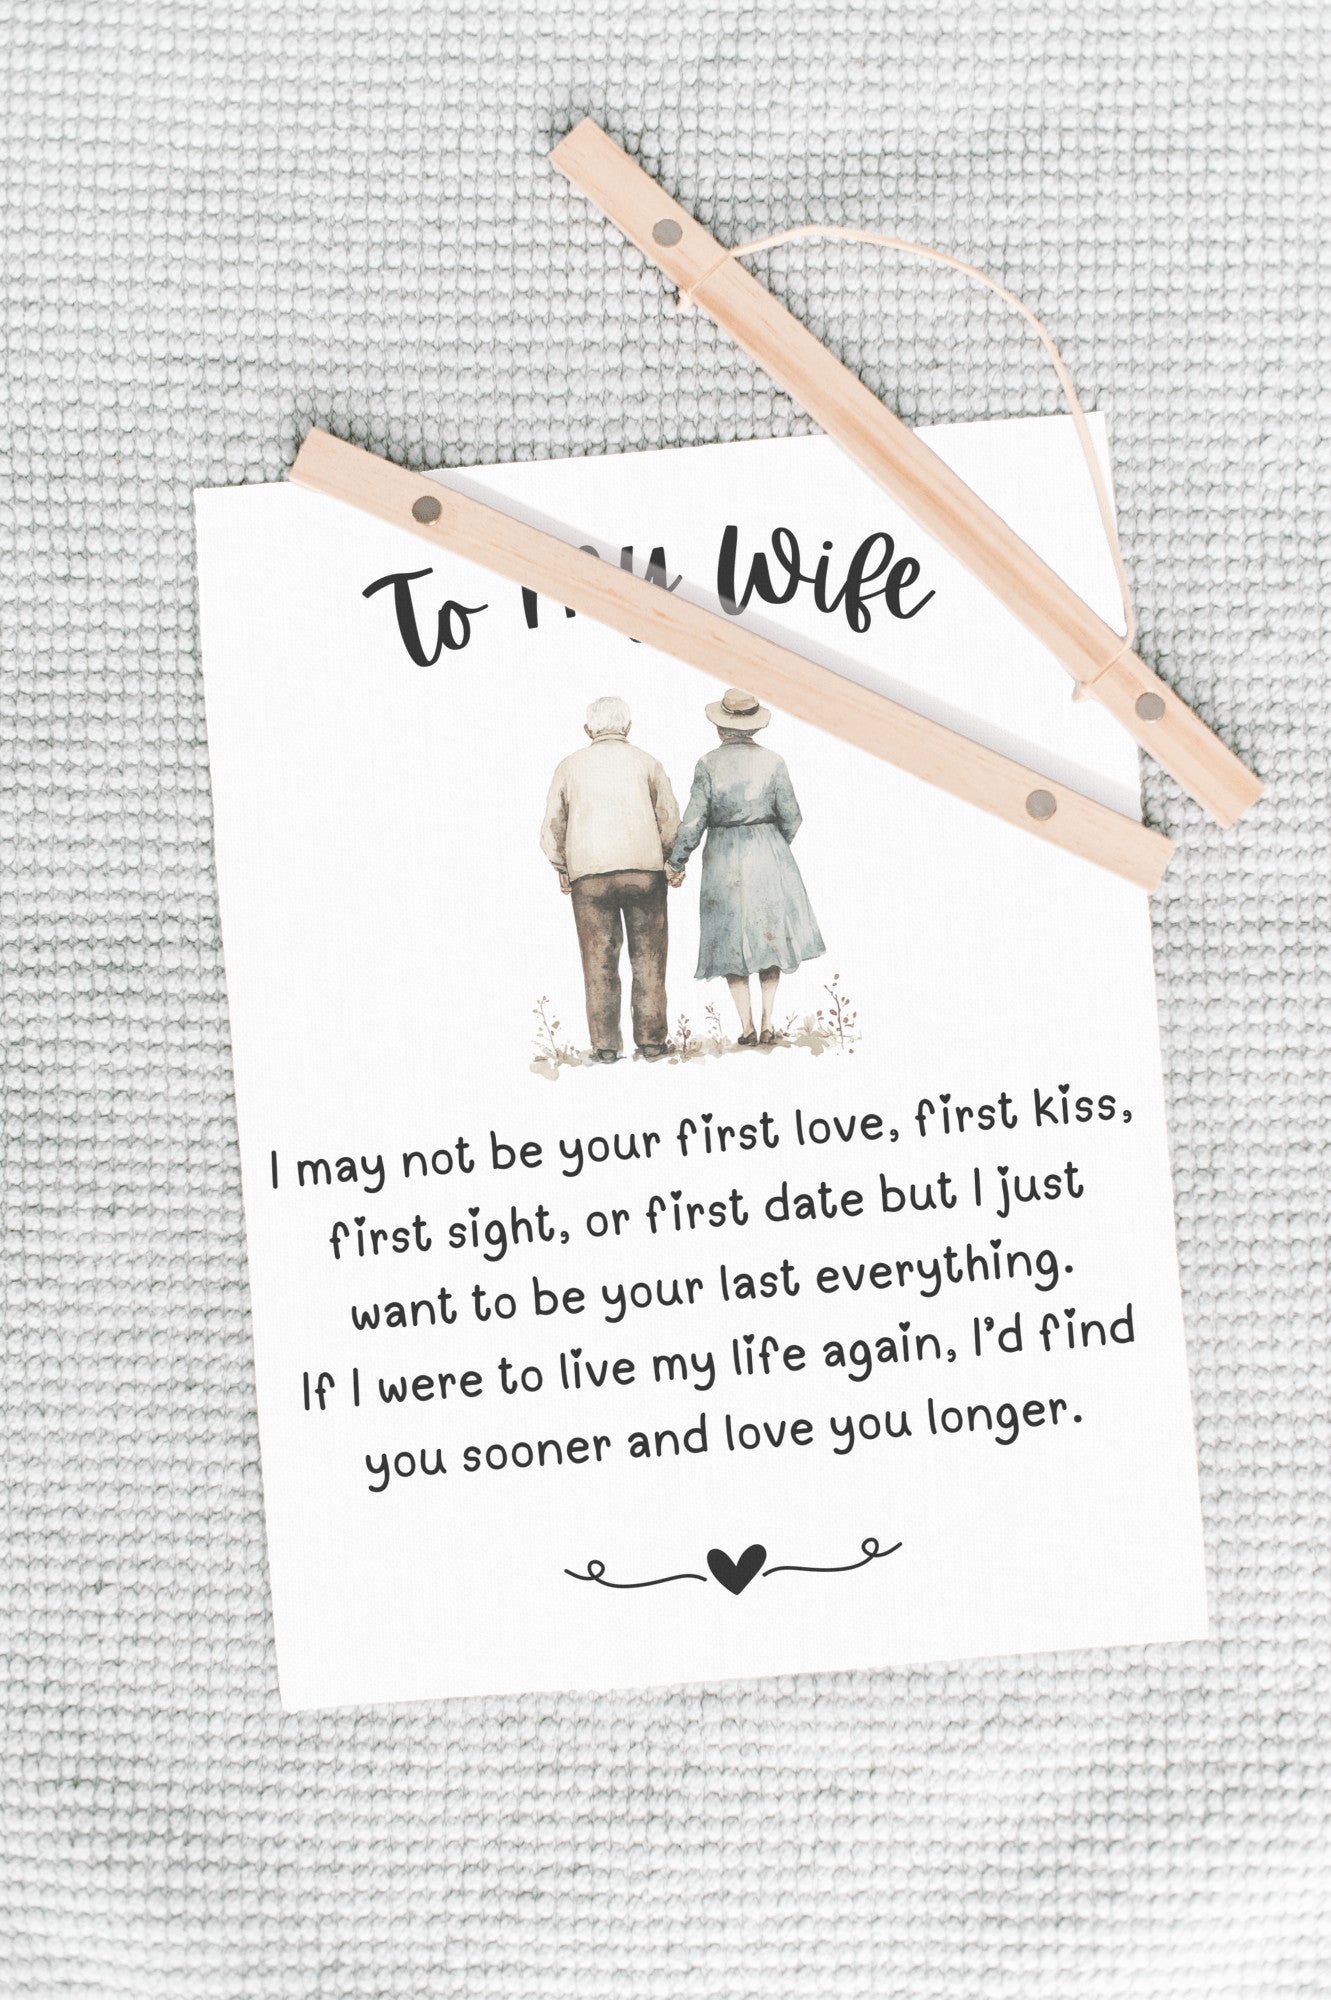 To my Wife
I may not be your first love, first kiss,
first sight, or first date but I just
want to be your last everything.
If I were to live my life again, I'd find
you sooner and love you longer.